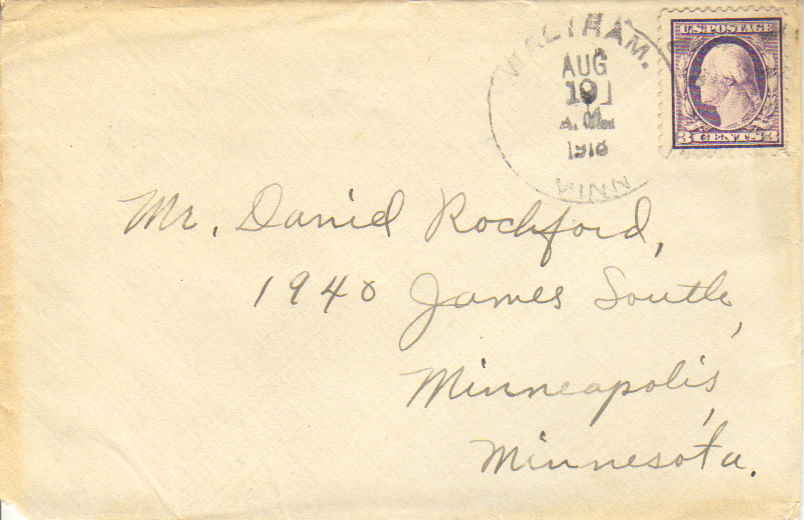 WALTHAM.
AUG
19
A.M.
1918
MINN
U.S. POSTAGE
3 CENTS 3
Mr. Daniel Rochford,
1940 James South,
Minneapolis,
Minnesota.